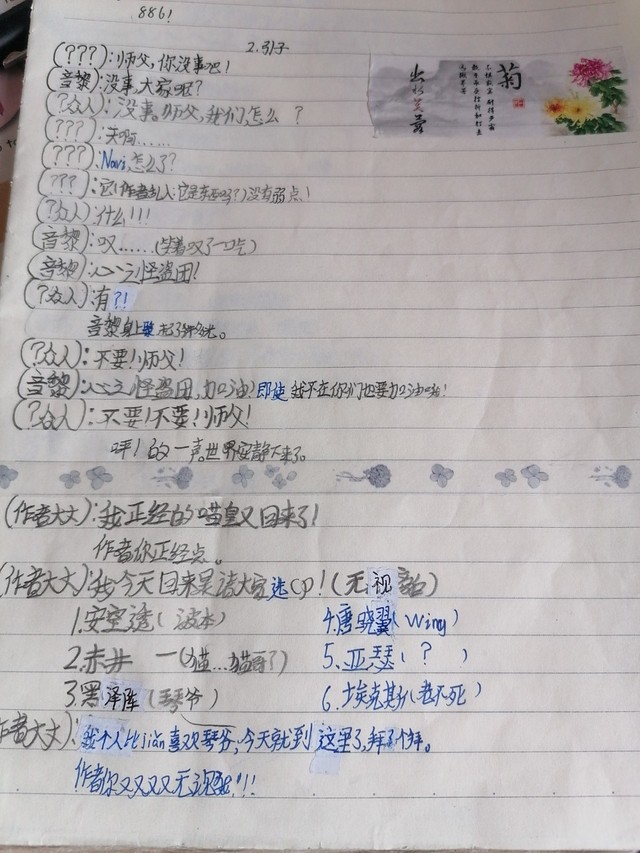 886!
2.引子
(???):师父,你没事吧!
(音黎):没事,大家呢?
(?众人):没事。师父,我们,怎么 ?
(???):天啊......
(???):Navi,怎么了?
(???):它(作者乱入:它是东西吗?)没有弱点!
(?众人):什么!!!
(音黎):哎......(坐着叹了一口气)
(音黎):心之怪盗团!
(?众人):有?!
音黎身上
(?众人):不要!师父!
(音黎):心之怪盗团,加油!即使我不在你们也要加油哦!
(?众人):不要!不要!师父!
呯!的一声,世界安静下来了。
菊
(作者大大):我正经的喵皇又回来了!
作者你正经点。
(作者大大):我今天回来是请大家选cp!(无视音)
1.安室透(波本)
2.赤井一(猫...猫哥了)
3.黑泽阵(琴爷)
4.唐晓翼(Wing)
5.亚瑟(?)
6.埃克斯(老不死)
作者大大):我个人比jiǎn喜欢琴爷,今天就到这里了,拜了个拜。
作者你又又又又无视我!!!